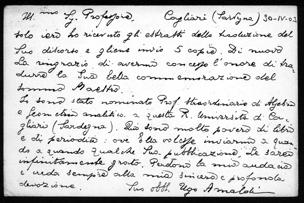 M.mo Sg. Professore, Cagliari (Sardegna) 30-IV-03
solo ieri ho ricevuto gli estratti della traduzione del
Suo discorso e gliene invio 5 copie. Di nuovo
La ringrazio di avermi concesso l'onore di tra-
durre la Sua bella commemorazione del
sommo Maestro.
Io sono stato nominato Prof. straordinario di Algebra
e Geometria analitica a questa R. Università di Ca-
gliari (Sardegna). Qui sono molto poveri di libri
e di periodici: ove Ella volesse inviarmi a quan-
do a quando qualche Sua pubblicazione Le sarei
infinitamente grato. Perdoni la mia audacia
e creda sempre alla mia sincera e profonda
devozione. Suo obbl. Ugo Amaldi